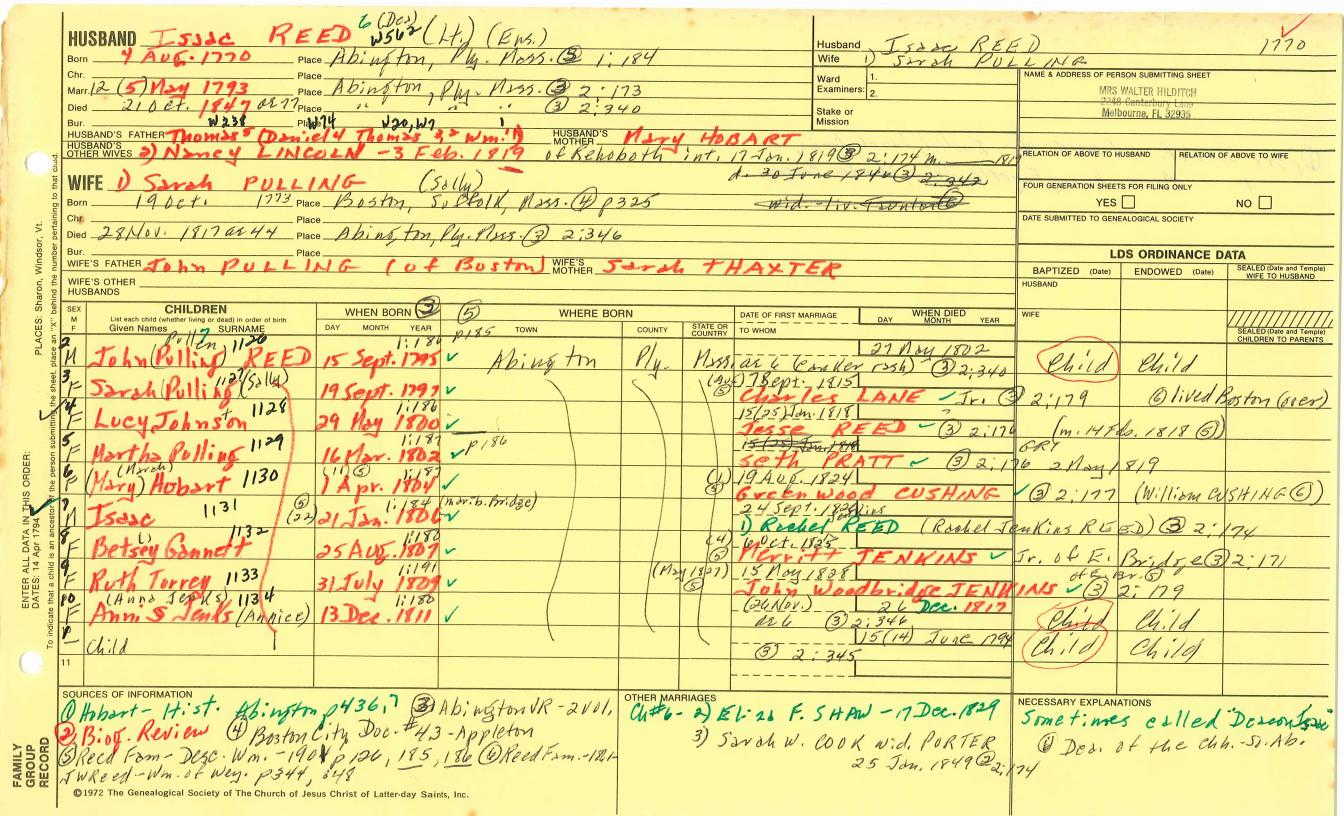 HUSBAND Isaac REED 6 (Des) W562 (Lt.) (Ens.)
Husband Isaac REED 1770
Wife 1) Sarah PULLING
Born 4 AUG. 1770 Place Abington, Ply. Mass. ③ 1:184
Chr. Place
Marr. 12 (5) May 1793 Place Abington, Ply. Mass. ③ 2:173
Died 21 Oct. 1847 ae 77 Place " " " ③ 2:340
Bur. W238 Place W74 W20, W7 1
Ward Examiners: 1. 2.
Stake or Mission
NAME & ADDRESS OF PERSON SUBMITTING SHEET
MRS WALTER HILDITCH
2248 Canterbury Lane
Melbourne, FL 32935
HUSBAND'S FATHER Thomas5 (Daniel4 Thomas3,2 Wm.1)
HUSBAND'S MOTHER Mary HOBART
HUSBAND'S OTHER WIVES 2) Nancy LINCOLN - 3 Feb. 1819 of Rehoboth int. 17 Jan. 1819 ③ 2:174 m. 1819
d. 30 June 1840 ③ 2:342
RELATION OF ABOVE TO HUSBAND
RELATION OF ABOVE TO WIFE
WIFE 1) Sarah PULLING (Sally)
Born 19 Oct. 1773 Place Boston, Suffolk, Mass. ④ p325
wid. - liv. Taunton ⑥
FOUR GENERATION SHEETS FOR FILING ONLY
YES NO
Chr. Place
DATE SUBMITTED TO GENEALOGICAL SOCIETY
Died 28 Nov. 1817 ae 44 Place Abington, Ply. Mass. ③ 2:346
Bur. Place
WIFE'S FATHER John PULLING (of Boston)
WIFE'S MOTHER Sarah THAXTER
WIFE'S OTHER HUSBANDS
LDS ORDINANCE DATA
BAPTIZED (Date) ENDOWED (Date) SEALED (Date and Temple) WIFE TO HUSBAND
HUSBAND
WIFE
SEALED (Date and Temple) CHILDREN TO PARENTS
SEX M F
CHILDREN
List each child (whether living or dead) in order of birth
Given Names SURNAME
WHEN BORN ③ DAY MONTH YEAR
⑤ WHERE BORN TOWN COUNTY STATE OR COUNTRY
DATE OF FIRST MARRIAGE TO WHOM
WHEN DIED DAY MONTH YEAR
2 M John (Pulling) REED Pullen 1126 15 Sept. 1795 1:186 p185 Abington Ply. Mass 27 May 1802 ae 6 (canker rash) ③ 2:340 Child Child
3 F Sarah (Pulling) 1127 (Sally) 19 Sept. 1797 7 Sept. 1815 Charles LANE Jr. ③ 2:179 ⑥ lived Boston (over)
4 F Lucy Johnson 1128 29 May 1800 1:186 15 (25) Jan. 1818 Jesse REED ③ 2:176 (m. 14 Feb. 1818 ⑤)
5 F Martha Pulling 1129 16 Mar. 1802 1:187 p186 15 (25) Jan. 1818 Seth PRATT ③ 2:176 GRY 2 May 1819
6 F (Mary) (Marah) Hobart 1130 1 Apr. 1804 (11) ⑤ 1:187 19 Aug. 1824 Greenwood CUSHING ③ 2:177 (William CUSHING ⑥)
7 M Isaac 1131 ⑤ (22) 21 Jan. 1806 1:184 (nar. b. Bridge) 24 Sept. 1) Rachel REED (Rachel Jenkins REED) ③ 2:174
8 F Betsey Gannett 1132 25 AUG. 1807 1:180 6 Oct. 1825 (4) ⑤ Merritt JENKINS Jr. of E. Bridge ③ 2:171
9 F Ruth Torrey 1133 31 July 1809 1:191 (May 1827) ⑤ 15 May 1828 John Woodbridge JENKINS of E. Br. ⑤ ③ 2:179
10 F Annis Jenks (Anna Jenks) 1134 (Annice) 13 Dec. 1811 1:180 (26 Nov.) 26 Dec. 1817 ae 6 ③ 2:346 Child Child
1 Child 15 (14) June 1794 ③ 2:345 Child Child
11
SOURCES OF INFORMATION
① Hobart - Hist. Abington p436,7 ③ Abington VR - 2 vol.
② Biog. Review ④ Boston City Doc. #43 - Appleton
⑤ Reed Fam - Desc. Wm. - 1901 p126, 185, 186 ⑥ Reed Fam. - 1861
JW Reed - Wm. of Wey. p344, 348
OTHER MARRIAGES
Ch #6 - 2) Eliza F. SHAW - 17 Dec. 1829
3) Sarah W. COOK wid. PORTER
25 Jan. 1849 ② 2:174
NECESSARY EXPLANATIONS
Sometimes called "Deacon Isaac"
① Dea. of the Chh. - So. Ab.
©1972 The Genealogical Society of The Church of Jesus Christ of Latter-day Saints, Inc.
FAMILY GROUP RECORD
ENTER ALL DATA IN THIS ORDER:
DATES: 14 Apr 1794
PLACES: Sharon, Windsor, Vt.
To indicate that a child is an ancestor of the person submitting the sheet, place an "X" behind the number pertaining to that child